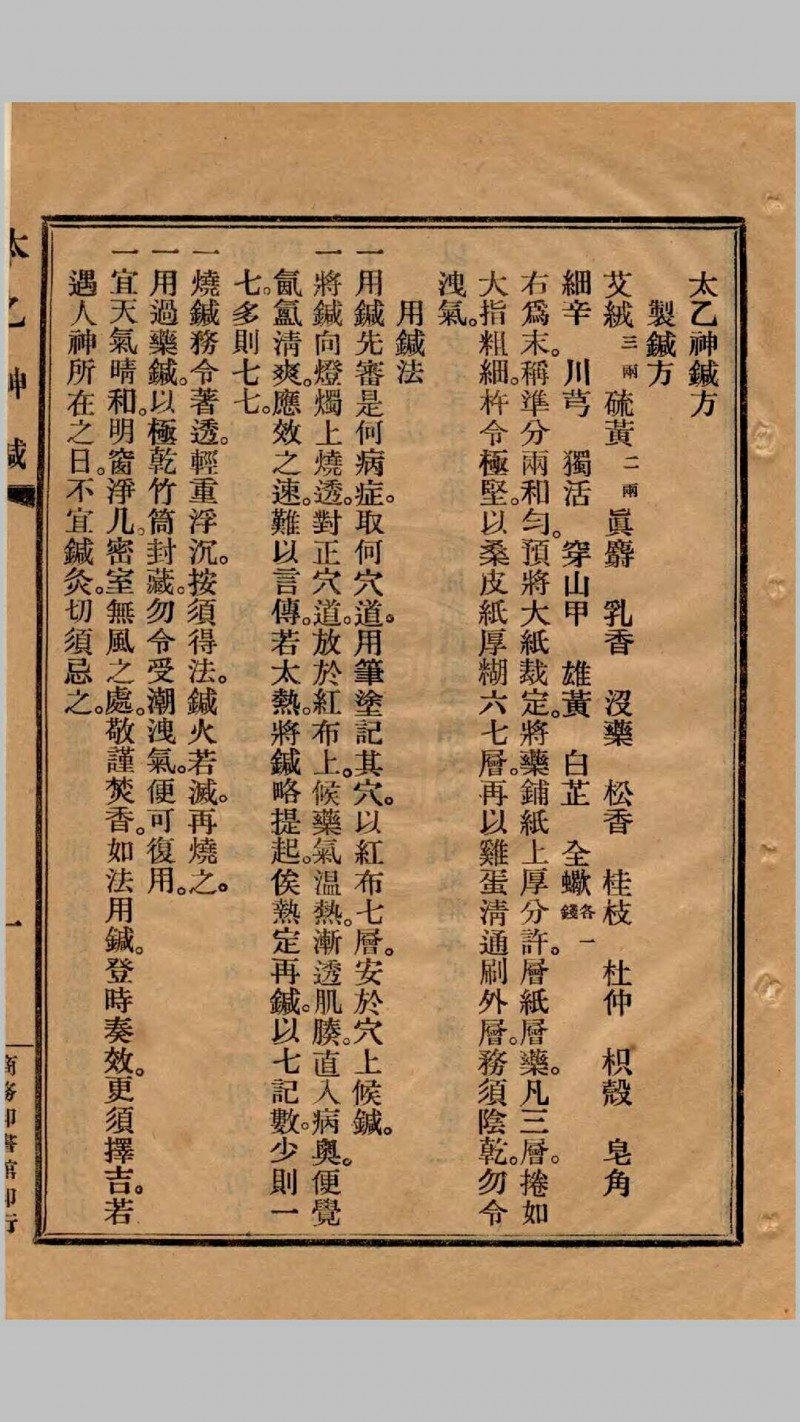 太乙神鍼方
製鍼方
艾絨三兩 硫黃二兩 眞麝 乳香 沒藥 松香 桂枝 杜仲 枳殼 皂角
細辛 川芎 獨活 穿山甲 雄黃 白芷 全蠍各一錢
右爲末。稱準分兩和勻。預將大紙裁定。將藥鋪紙上厚分許。層紙層藥。凡三層。捲如
大指粗細。杵令極堅。以桑皮紙厚糊六七層。再以雞蛋淸通刷外層。務須陰乾。勿令
洩氣。
用鍼法
一用鍼先審是何病症。取何穴道。用筆塗記其穴。以紅布七層。安於穴上候鍼。
一將鍼向燈燭上燒透。對正穴道。放於紅布上。候藥氣温熱。漸透肌腠。直入病奧。便覺
氤氳淸爽。應效之速。難以言傳。若太熱。將鍼略提起。俟熱定再鍼。以七記數。少則一
七。多則七七。
一燒鍼務令著透。輕重浮沉。按須得法。鍼火若滅。再燒之。
一用過藥鍼。以極乾竹筒封藏。勿令受潮洩氣。便可復用。
一宜天氣晴和。明窗淨几。密室無風之處。敬謹焚香。如法用鍼。登時奏效。更須擇吉。若
遇人神所在之日。不宜鍼灸。切須忌之。
太乙神鍼
一
商務印書館印行